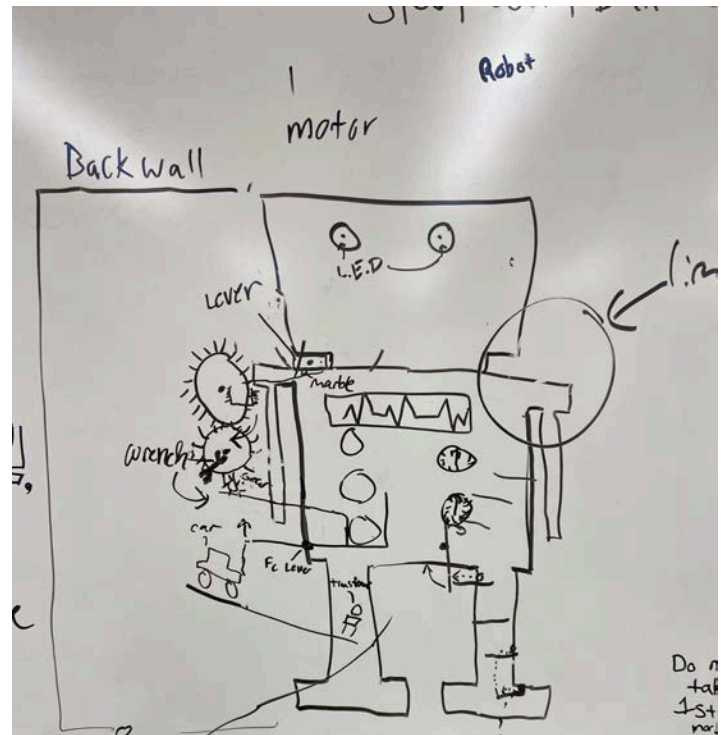 Robot
motor
Backwall
L.E.D
Lever
marble
wrench
car
Fc Lever
Do
1st